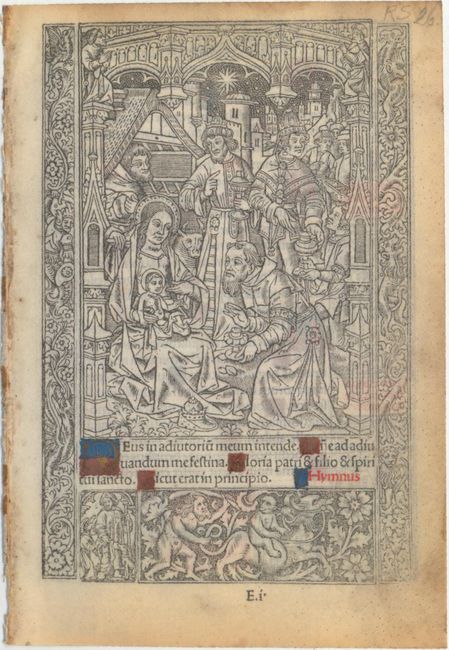 RS 26
Eus in adiutoriũ meum intende. ñe ad adiu
uandum me festina. loria patri & filio & spiri
tui sancto. icut erat in principio. Hymnus
E.i.